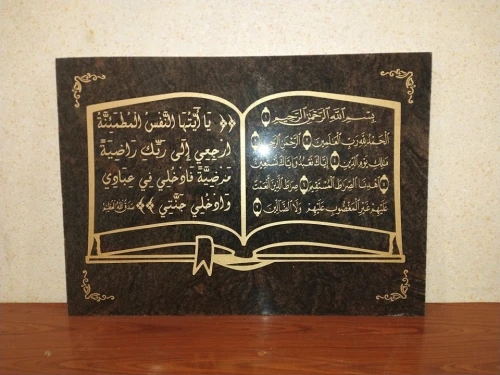 بِسْمِ اللَّهِ الرَّحْمَٰنِ الرَّحِيمِ ١
الْحَمْدُ لِلَّهِ رَبِّ الْعَالَمِينَ ٢ الرَّحْمَٰنِ الرَّحِيمِ ٣
مَالِكِ يَوْمِ الدِّينِ ٤ إِيَّاكَ نَعْبُدُ وَإِيَّاكَ نَسْتَعِينُ
٥ اهْدِنَا الصِّرَاطَ الْمُسْتَقِيمَ ٦ صِرَاطَ الَّذِينَ أَنْعَمْتَ
عَلَيْهِمْ غَيْرِ الْمَغْضُوبِ عَلَيْهِمْ وَلَا الضَّالِّينَ ٧
﴿﴿ يَا أَيَّتُهَا النَّفْسُ الْمُطْمَئِنَّةُ
ارجِعِي إِلَى رَبِّكِ رَاضِيَةً
مَرضِيَّةً فَادخُلِي فِي عِبَادِي
وَادخُلِي جَنَّتِي ﴾﴾ صدق الله العظيم